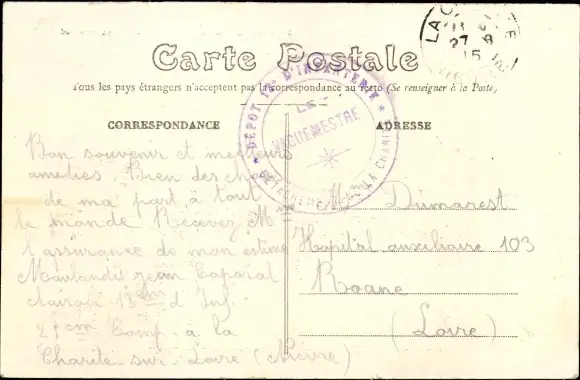 Carte Postale
Tous les pays étrangers n'acceptent pas la correspondance au recto (Se renseigner à la Poste)
CORRESPONDANCE
ADRESSE
DÉPOT D'INFANTERIE
LE
VAGUEMESTRE
LA CHARITÉ
LA
27
15
Bon souvenir et meilleurs
amities. Bien des choses
de ma part à tout
le monde Recevez M
l'assurance de mon estime
Jean Caporal
clairon d'Inf.
Comp. à la
Charité-sur-Loire (Nievre)
Dumarest
Hopital auxiliaire 103
Roane
(Loire)